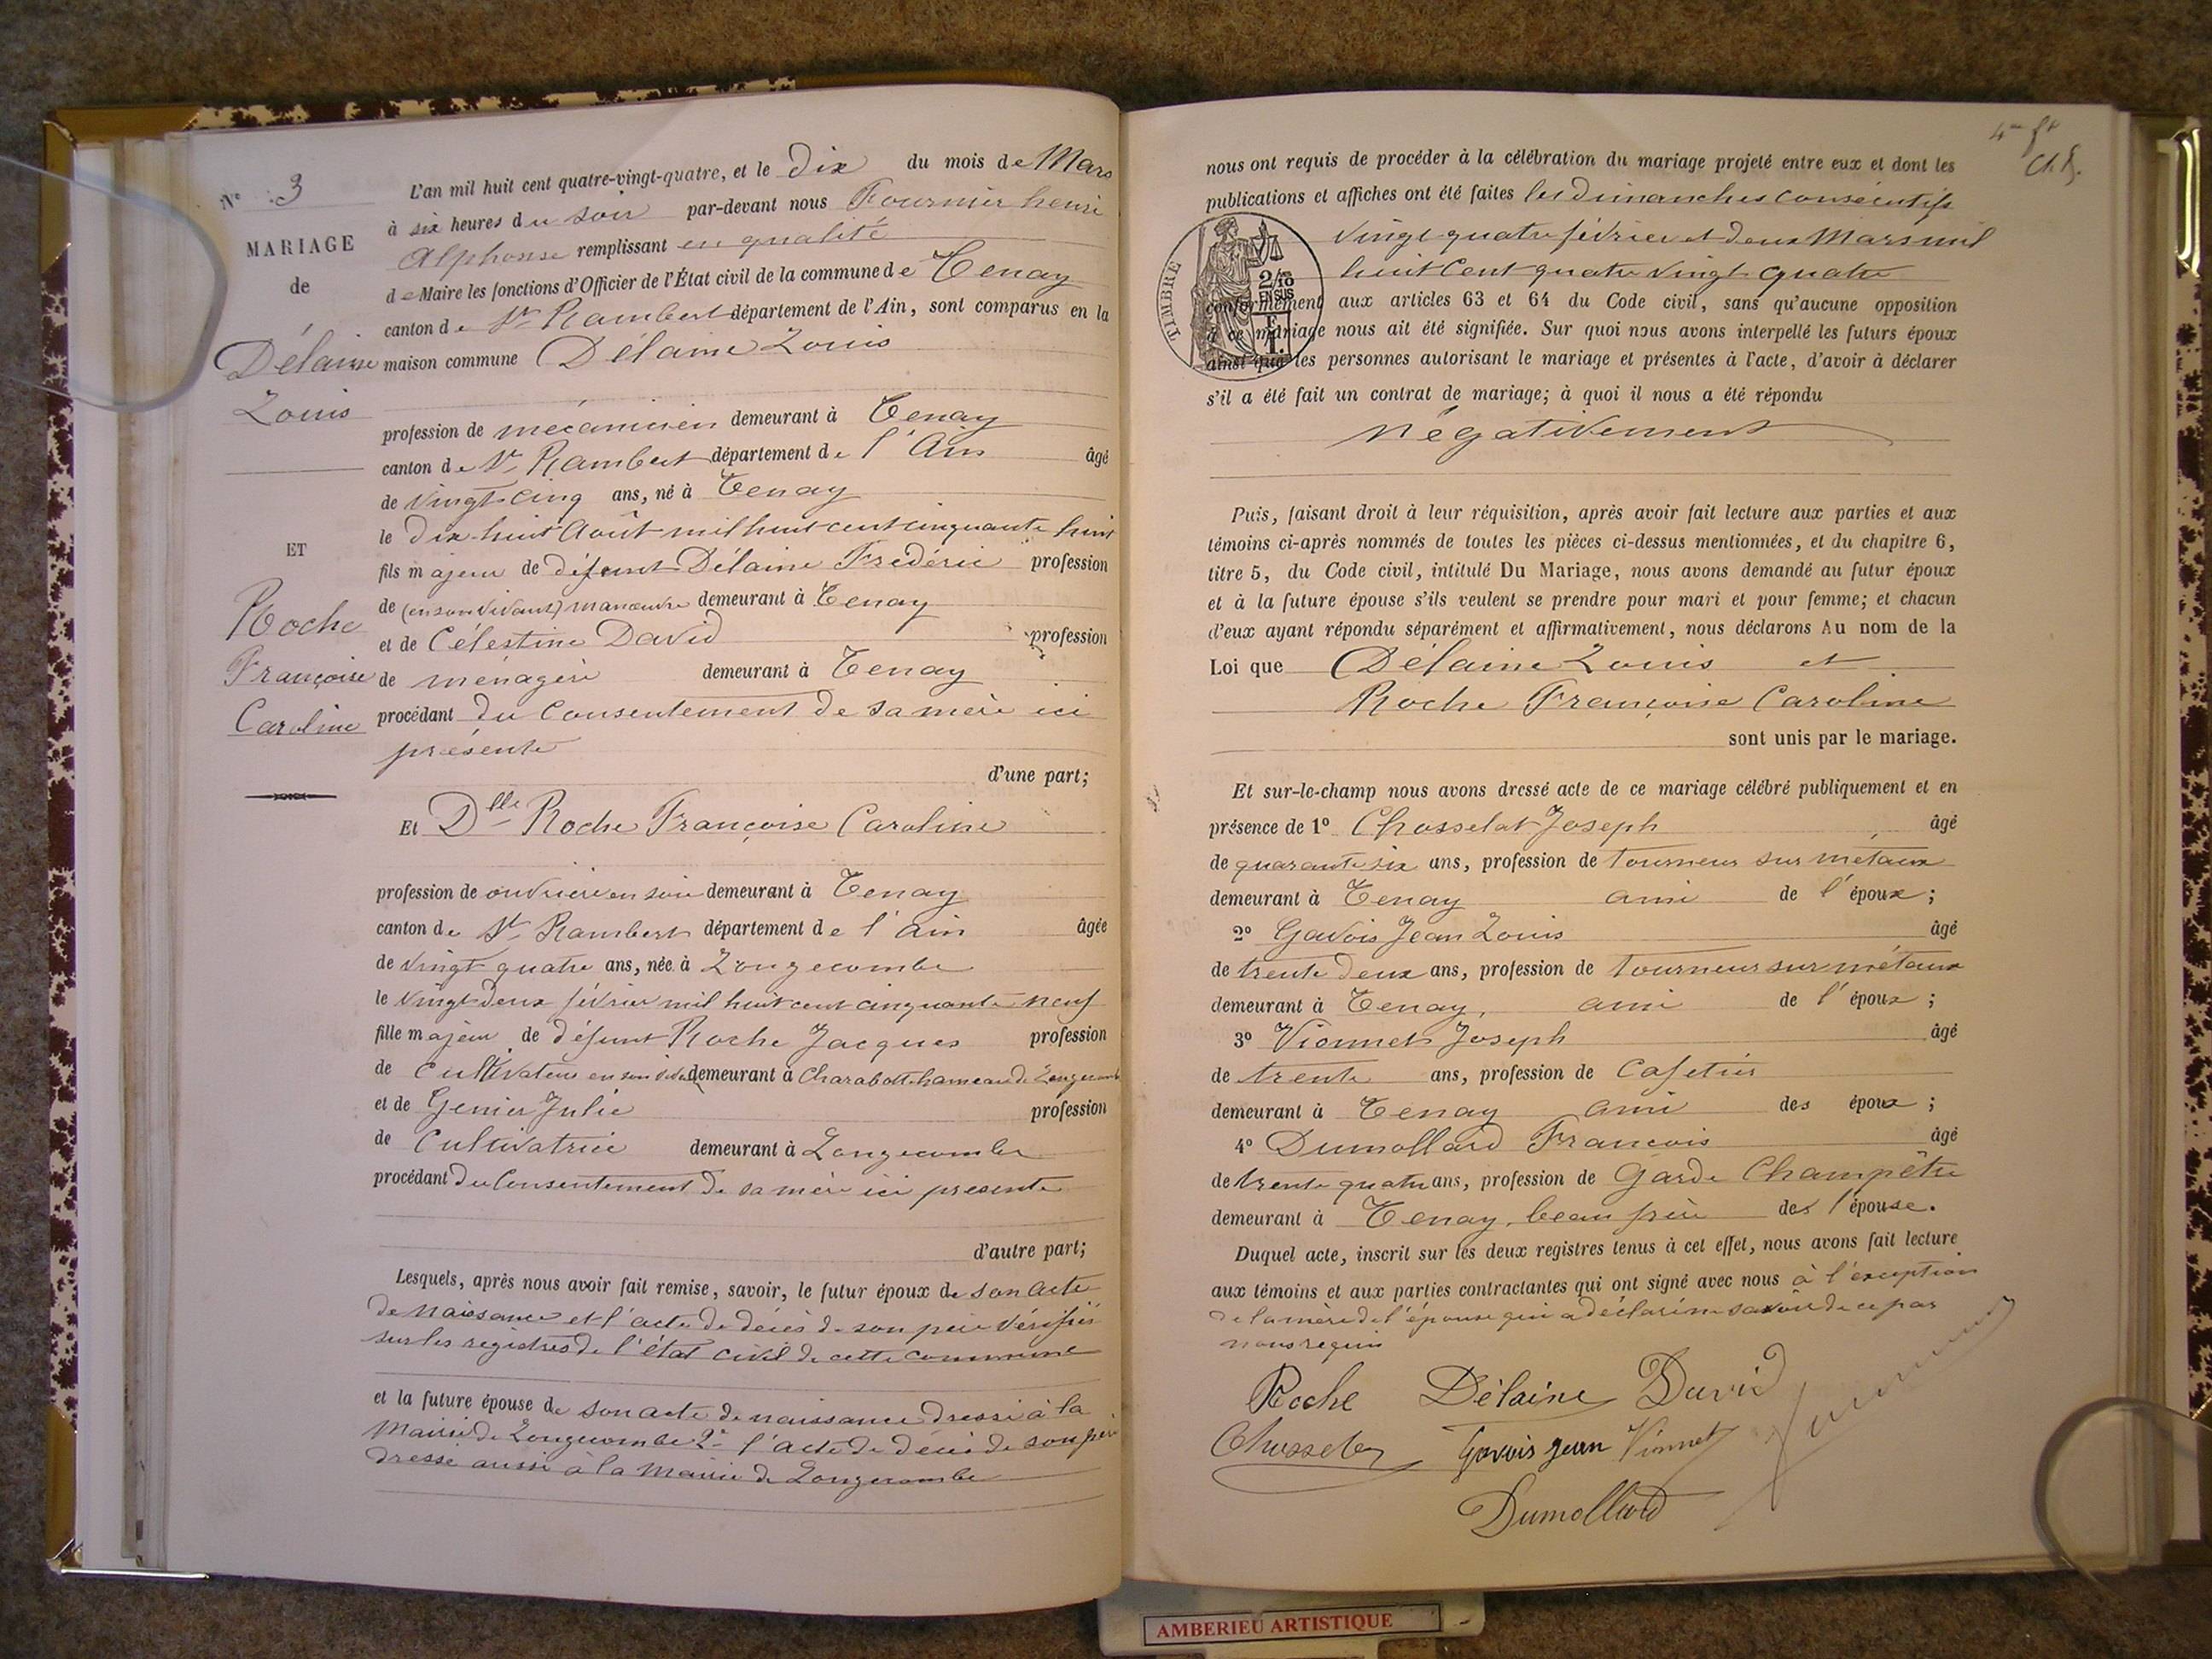 N° 3
MARIAGE
de
Délaine
Louis
ET
Roche
Françoise
Caroline
L'an mil huit cent quatre-vingt-quatre, et le dix du mois de Mars
à six heures du soir par-devant nous Fournier henri
Alphonse remplissant en qualité
de Maire les fonctions d'Officier de l'État civil de la commune de Tenay
canton de St Rambert département de l'Ain, sont comparus en la
maison commune Délaine Louis
profession de mécanicien demeurant à Tenay
canton de St Rambert département de l'Ain âgé
de vingt-cinq ans, né à Tenay
le dix-huit Août mil huit cent cinquante huit
fils majeur de défunt Délaine Frédéric profession
de (en son vivant) manœuvre demeurant à Tenay
et de Célestine David profession
de ménagère demeurant à Tenay
procédant du Consentement de sa mère ici
présente
d'une part;
Et Dlle Roche Françoise Caroline
profession de ouvrière en soie demeurant à Tenay
canton de St Rambert département de l'ain âgée
de vingt quatre ans, née à Longecombe
le vingt deux février mil huit cent cinquante neuf
fille majeure de défunt Roche Jacques profession
de Cultivateur en son vivant demeurant à Charabotte hameau de Longecombe
et de Genier Julie profession
de Cultivatrice demeurant à Longecombe
procédant du Consentement de sa mère ici presente
d'autre part;
Lesquels, après nous avoir fait remise, savoir, le futur époux de son acte
de naissance et l'acte de décès de son père vérifiés
sur les registres de l'état civil de cette commune
et la future épouse de son acte de naissance dressé à la
Mairie de Longecombe 2° l'acte de décès de son père
dressé aussi à la Mairie de Longecombe
4me ft
Ch F.
nous ont requis de procéder à la célébration du mariage projeté entre eux et dont les
publications et affiches ont été faites les dimanches consécutifs
vingt-quatre février et deux Mars mil
huit Cent quatre vingt quatre
TIMBRE
2/10
EN SUS
conformément aux articles 63 et 64 du Code civil, sans qu'aucune opposition
à ce mariage nous ait été signifiée. Sur quoi nous avons interpellé les futurs époux
ainsi que les personnes autorisant le mariage et présentes à l'acte, d'avoir à déclarer
s'il a été fait un contrat de mariage; à quoi il nous a été répondu
négativement
Puis, faisant droit à leur réquisition, après avoir fait lecture aux parties et aux
témoins ci-après nommés de toutes les pièces ci-dessus mentionnées, et du chapitre 6,
titre 5, du Code civil, intitulé Du Mariage, nous avons demandé au futur époux
et à la future épouse s'ils veulent se prendre pour mari et pour femme; et chacun
d'eux ayant répondu séparément et affirmativement, nous déclarons Au nom de la
Loi que Délaine Louis et
Roche Françoise Caroline
sont unis par le mariage.
Et sur-le-champ nous avons dressé acte de ce mariage célébré publiquement et en
présence de 1° Chosselat Joseph âgé
de quarante six ans, profession de tourneur sur métaux
demeurant à Tenay ami de l'époux;
2° Gavois Jean Louis âgé
de trente deux ans, profession de tourneur sur métaux
demeurant à Tenay, ami de l'époux;
3° Vionnet Joseph âgé
de trente ans, profession de Cafetier
demeurant à Tenay ami des époux;
4° Dumollard Francois âgé
de trente quatre ans, profession de Garde Champêtre
demeurant à Tenay, beau frère de l'épouse.
Duquel acte, inscrit sur les deux registres tenus à cet effet, nous avons fait lecture
aux témoins et aux parties contractantes qui ont signé avec nous à l'exception
de la mère de l'épouse qui a déclaré ne savoir de ce par
nous requis
Roche Délaine David
Gavois jean Vionnet
Dumollard
AMBERIEU ARTISTIQUE